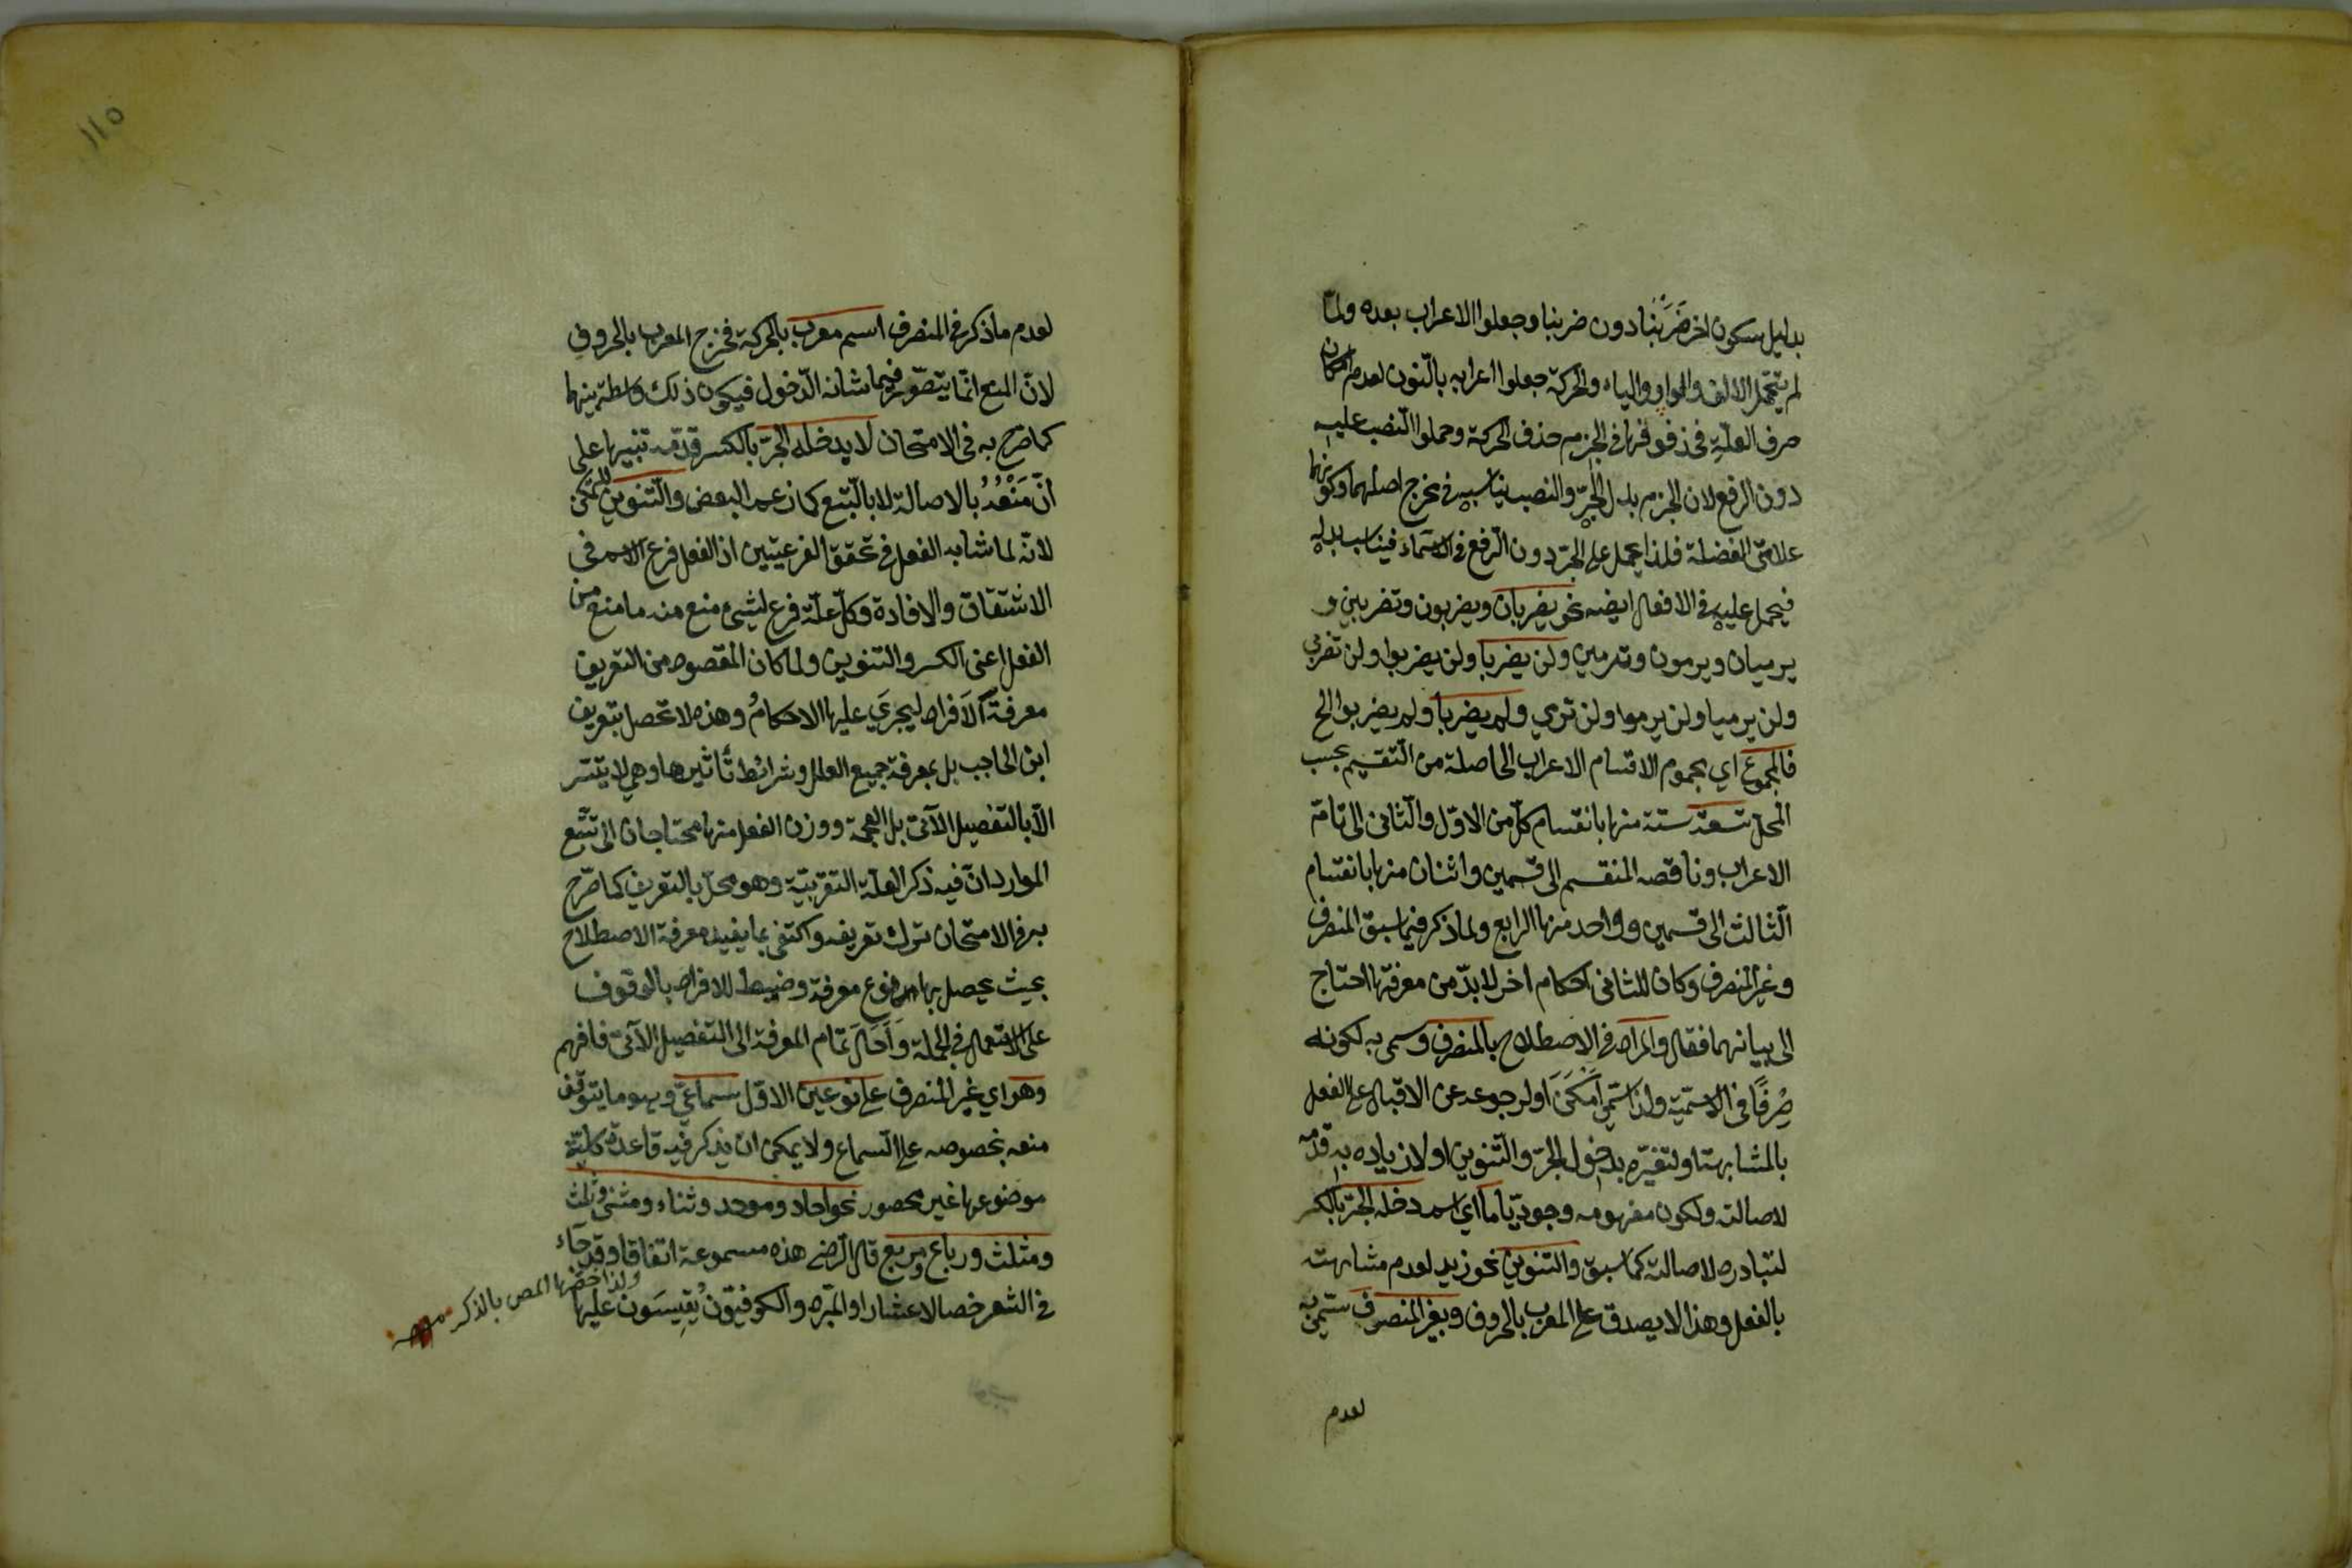 بدليل سكون اخر ضَرَبْنا دون ضربنا وجعلوا الاعراب بعده ولمّا
لم يتحمّل الالف والواو والياء والحركة جعلوا اعرابه بالنّون لعدم امكان
حرف العلّة فحذفوها في الجزم حذف الحركة وحملوا النّصب عليه
دون الرفع لان الجزم بدل الجرّ والنصب يناسبه في مخرج اصلهما وكونهما
علامتى الفضلة فلذا يحمل على الجرّ دون الرّفع في الاسماء فيناسب بدله
فيحمل عليه في الافعال ايضه نحو يضربان ويضربون وتضربين و
يرميان ويرمون وترمين ولن يضربا ولن يضربوا ولن تضربى
ولن يرميا ولن يرموا ولن ترمي ولم يضربا ولم يضربوا الخ
فالمجموع اي مجموع الاقسام الاعراب الحاصلة من التّقسيم بحسب
المحلّ تسعة ستة منها بانقسام كلّ من الاوّل والثّانى الى تامّ
الاعراب وناقصه المنقسم الى قسمين واثنان منها بانقسام
الثّالث الى قسمين وواحد منها الرابع ولما ذكر فيما سبق المنصرف
وغير المنصرف وكان للثانى احكام اخر لابدّ من معرفتها احتاج
الى بيانهما فقال والمراد في الاصطلاح بالمنصرف وسمى به لكونه
صِرفًا في الاسميّة ولذا سمّي اَمْكَنَ او لرجوعه عن الاقبال على الفعل
بالمشابهة او لتغيّره بدخول الجرّ والتّنوين او لازدياده به قدّمه
لاصالته ولكون مفهومه وجوديّا ما اي اسم دخله الجرّ بالكسر
لتبادره لاصالته كما سبق والتنوين نحو زيد لعدم مشابهته
بالفعل وهذا لا يصدق على المعرب بالحروف وبغير المنصرف سمّي به
لعدم
١١٥
لعدم ما ذكر في المنصرف اسم معرب بالحركة فخرج المعرب بالحروف
لانّ المنع انّما يتصوّر فيما شانه الدّخول فيكون ذلك واسطة بينهما
كما صرّح به في الامتحان لا يدخله الجرّ بالكسر قدّمه تنبيها على
انّ مَنْعَهُ بالاصالة لا بالتّبع كما زعم البعض والتّنوين للتمكن
لانّه لما شابه الفعل في تحقق الفرعيّتين اذ الفعل فرع الاسم فى
الاشتقاق والافادة وكلّ علّة فرع لشيء منع منه ما منع من
الفعل اعنى الكسر والتنوين ولما كان المقصود من التعريف
معرفة الاَفراد ليجريَ عليها الاحكامُ وهذه لا تحصل بتعريف
ابن الحاجب بل بمعرفة جميع العلل وشرائط تأثيرها وهي لا يتيسّر
الّا بالتفصيل الآتى بل العجمة ووزن الفعل منها محتاجان الى تتبّع
الموارد انّ فيه ذكر العلّة التقريبيّة وهو مخلّ بالتعريف كما صرّح
به في الامتحان ترك تعريفه واكتفى بما يفيده معرفة الاصطلاح
بحيث يحصل بها نوع معرفة وضبط للافراد بالوقوف
على الاستعمال في الجملة وَاَحَالَ تمام المعرفة الى التفصيل الآتى فافهم
وهو اي غير المنصرف على نوعين الاوّل سماعيّ وهو ما يتوقّف
منعه بخصوصه على السّماع ولا يمكن ان يذكر فيه قاعدة كليّة
موضوعها غير محصور نحو احاد وموحد وثناء ومثنى وثلث
ومثلث ورباع ومربع قال الرّضى هذه مسموعة اتفاقا وقد جاء
في الشعر خصال عشارا والمبرّد والكوفيّون يُقيسَون عليها
ولذا خصّها المص بالذكر منه